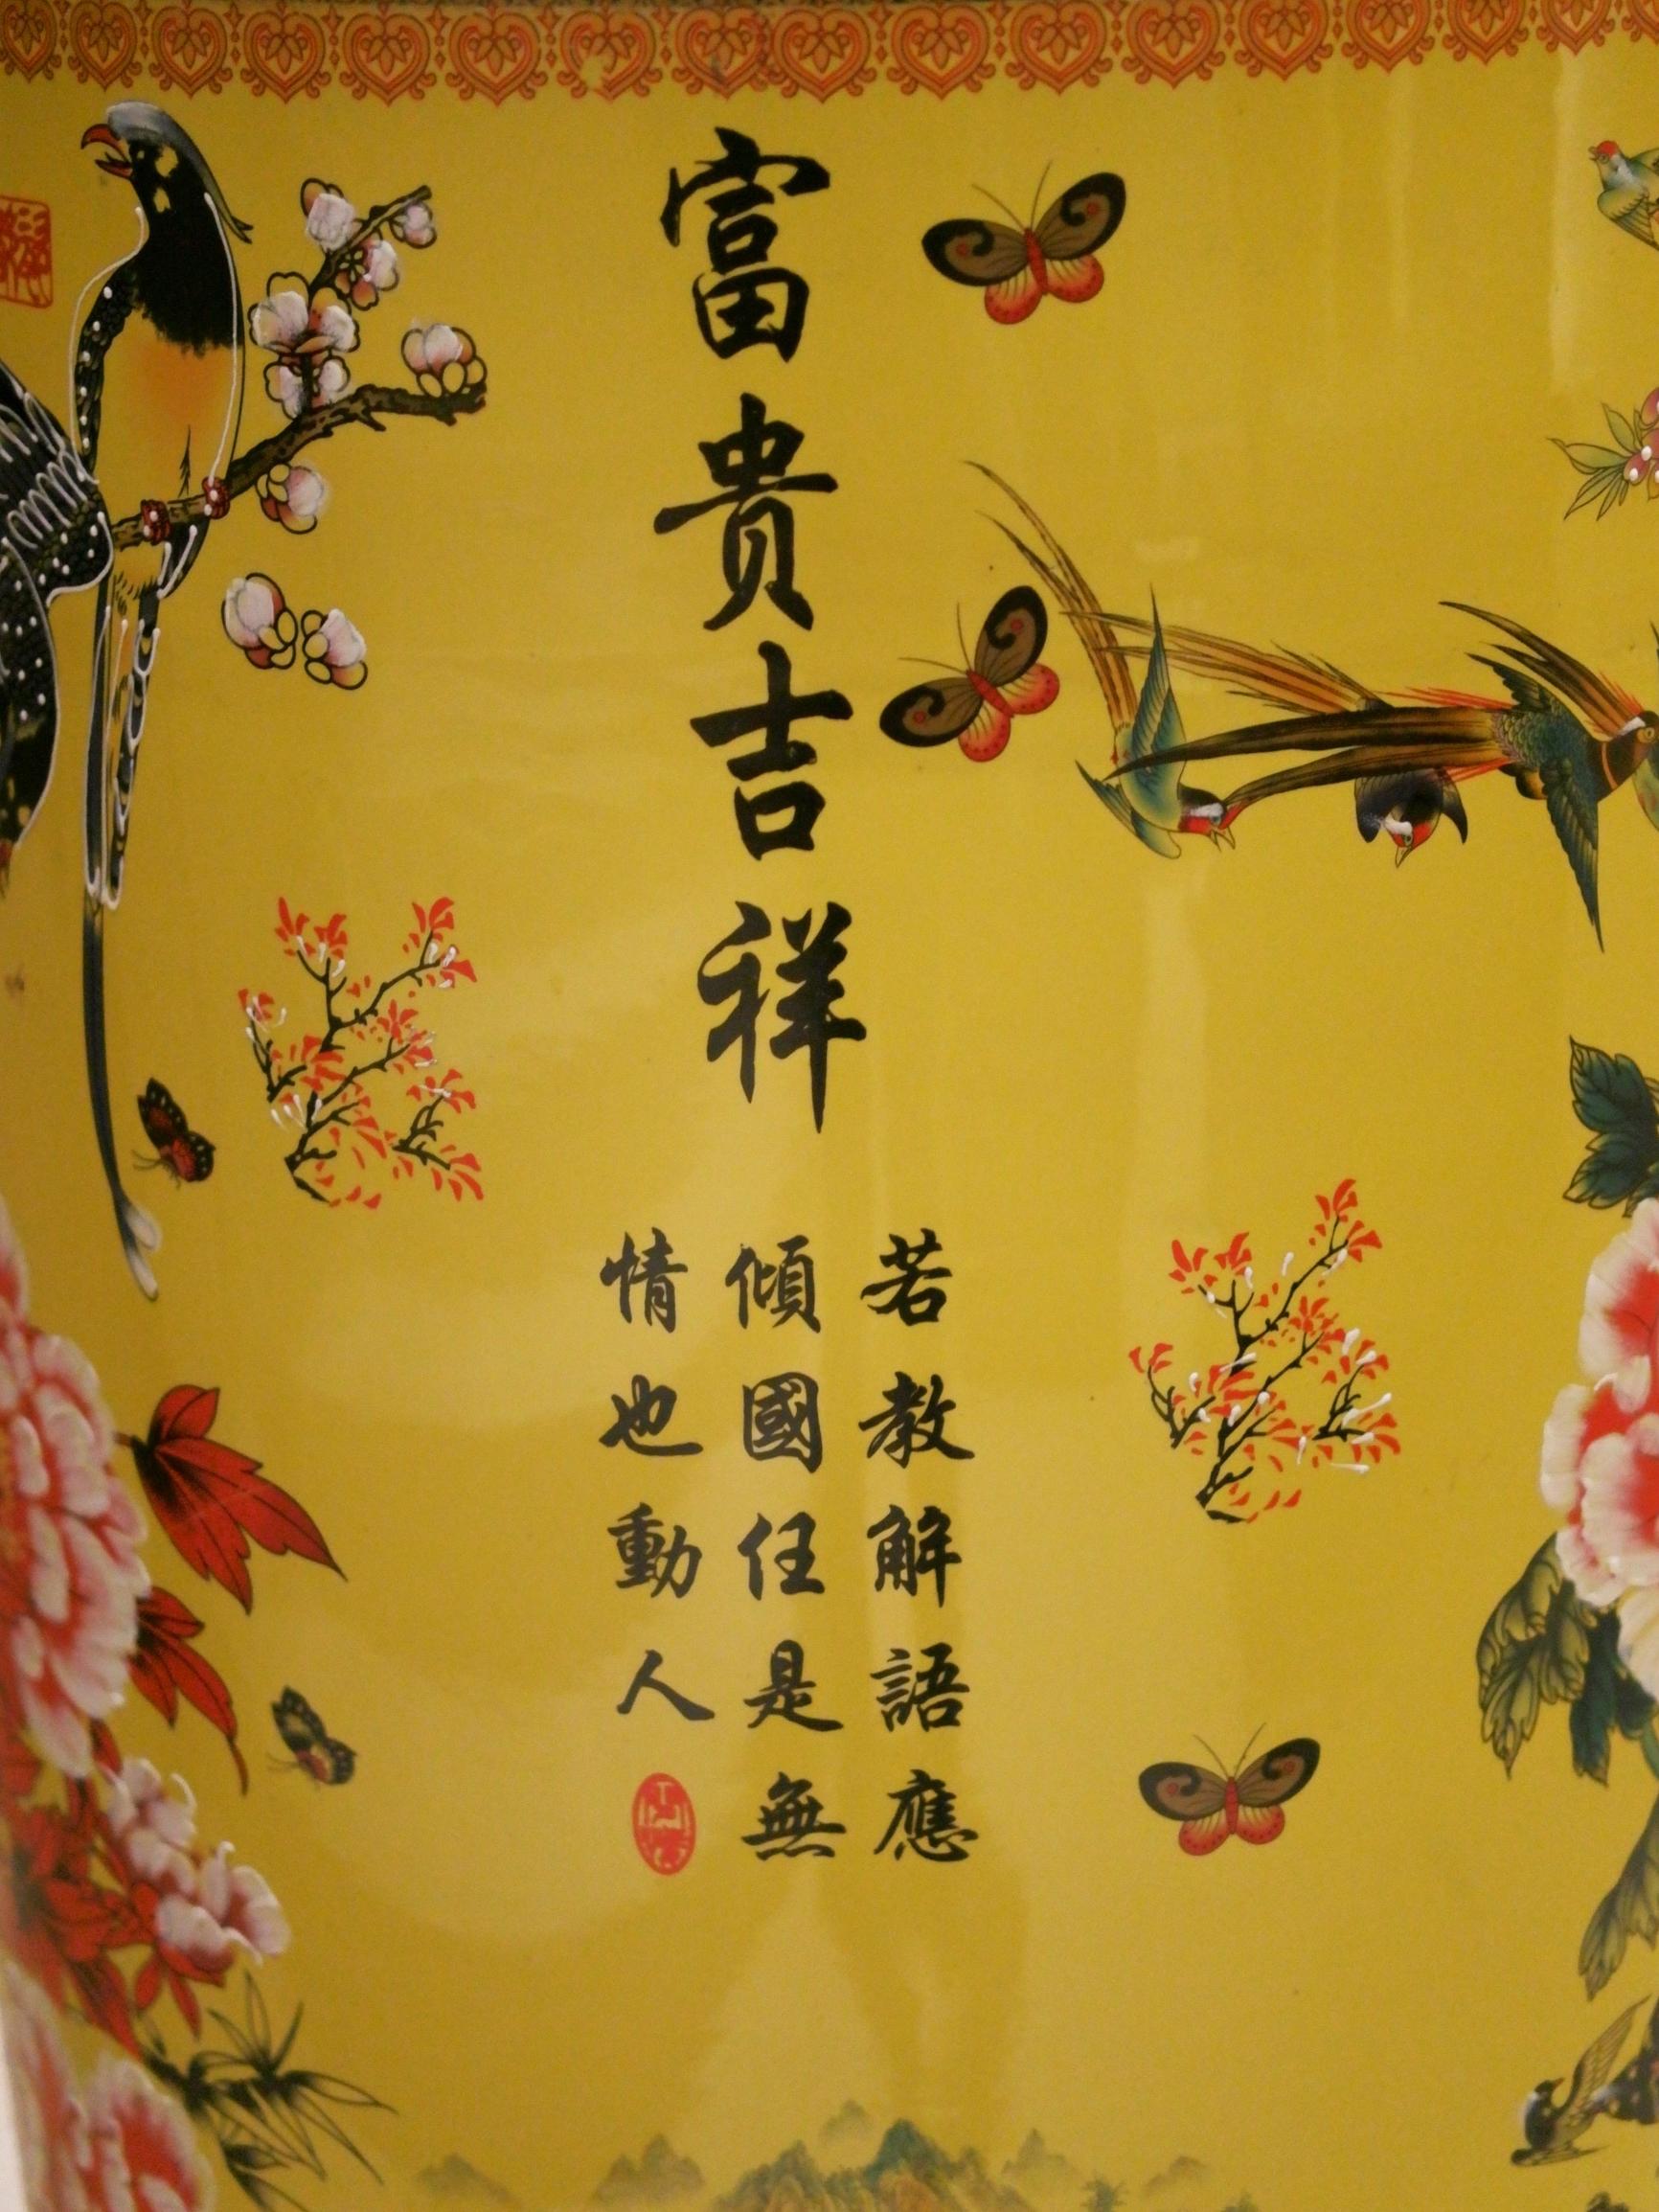 富貴吉祥
若教解語應
傾國任是無
情也動人